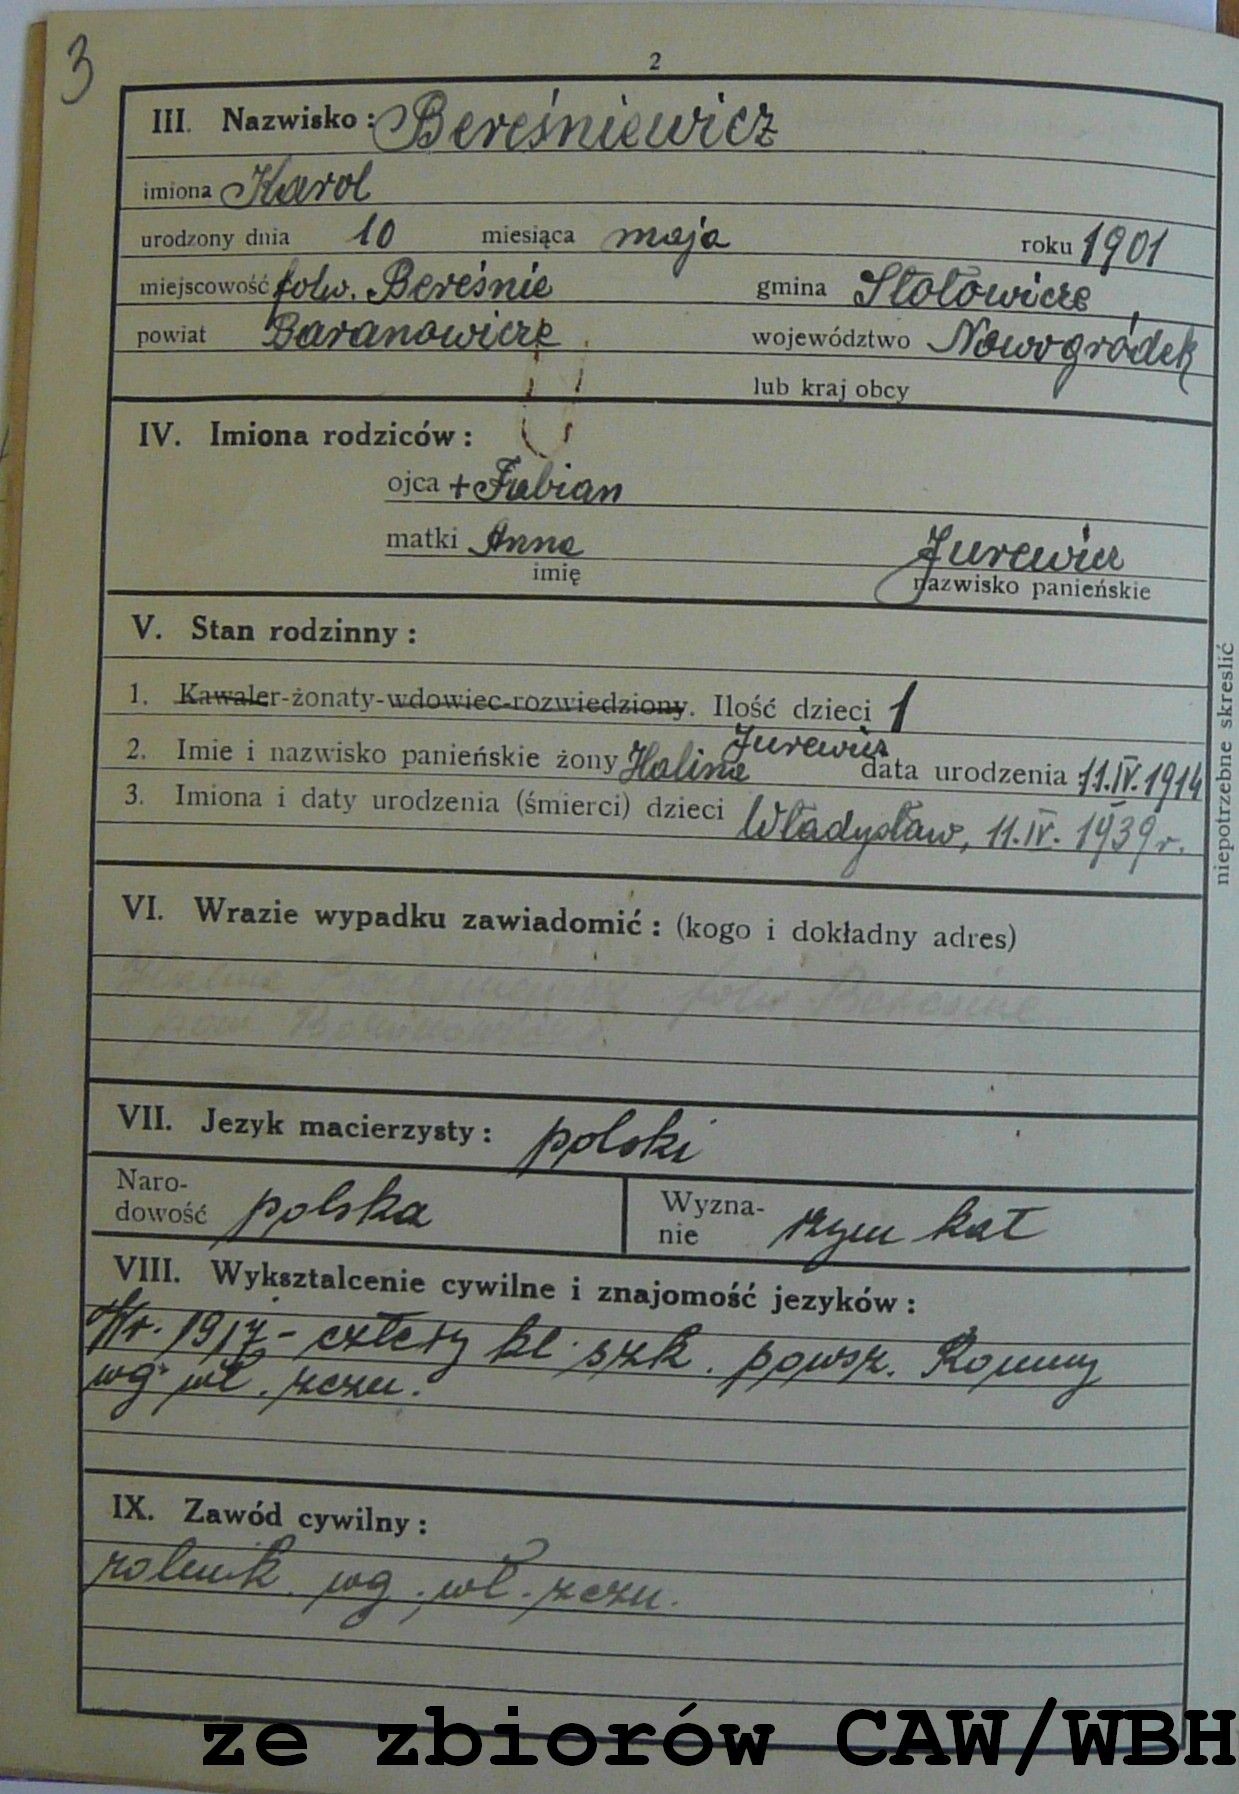 3
2
III. Nazwisko: Bereśniewicz
imiona Karol
urodzony dnia 10 miesiąca maja roku 1901
miejscowość folw. Bereśnie gmina Stołowicze
powiat Baranowicze województwo Nowogródek
lub kraj obcy
IV. Imiona rodziców:
ojca + Fabian
matki Anna Jurewicz
imię nazwisko panieńskie
V. Stan rodzinny:
1. Kawaler-żonaty-wdowiec-rozwiedziony. Ilość dzieci 1
2. Imie i nazwisko panieńskie żony Halina Jurewicz data urodzenia 11.IV.1914
3. Imiona i daty urodzenia (śmierci) dzieci Władysław, 11.IV.1939 r.
niepotrzebne skreslić
VI. Wrazie wypadku zawiadomić: (kogo i dokładny adres)
Halina folw
pow
VII. Jezyk macierzysty: polski
Naro-
dowość polska
Wyzna-
nie rzym kat
VIII. Wyksztalcenie cywilne i znajomość jezyków:
W r. 1917 - cztery kl. szk. powsz.
wg. wł. zezn.
IX. Zawód cywilny:
rolnik wg. wł. zezn.
ze zbiorów CAW/WBH